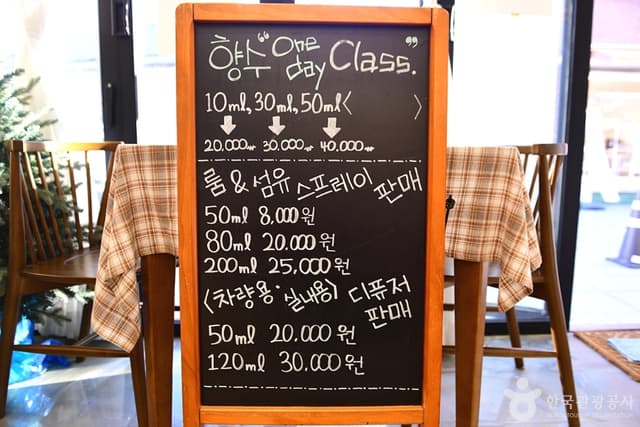 향수 "One day Class."
10ml, 30ml, 50ml < >
20.000원 30.000원 40.000원
룸 & 섬유 스프레이 판매
50ml 8.000원
80ml 20.000원
200ml 25.000원
<차량용·실내용> 디퓨저 판매
50ml 20.000원
120ml 30.000원
한국관광공사